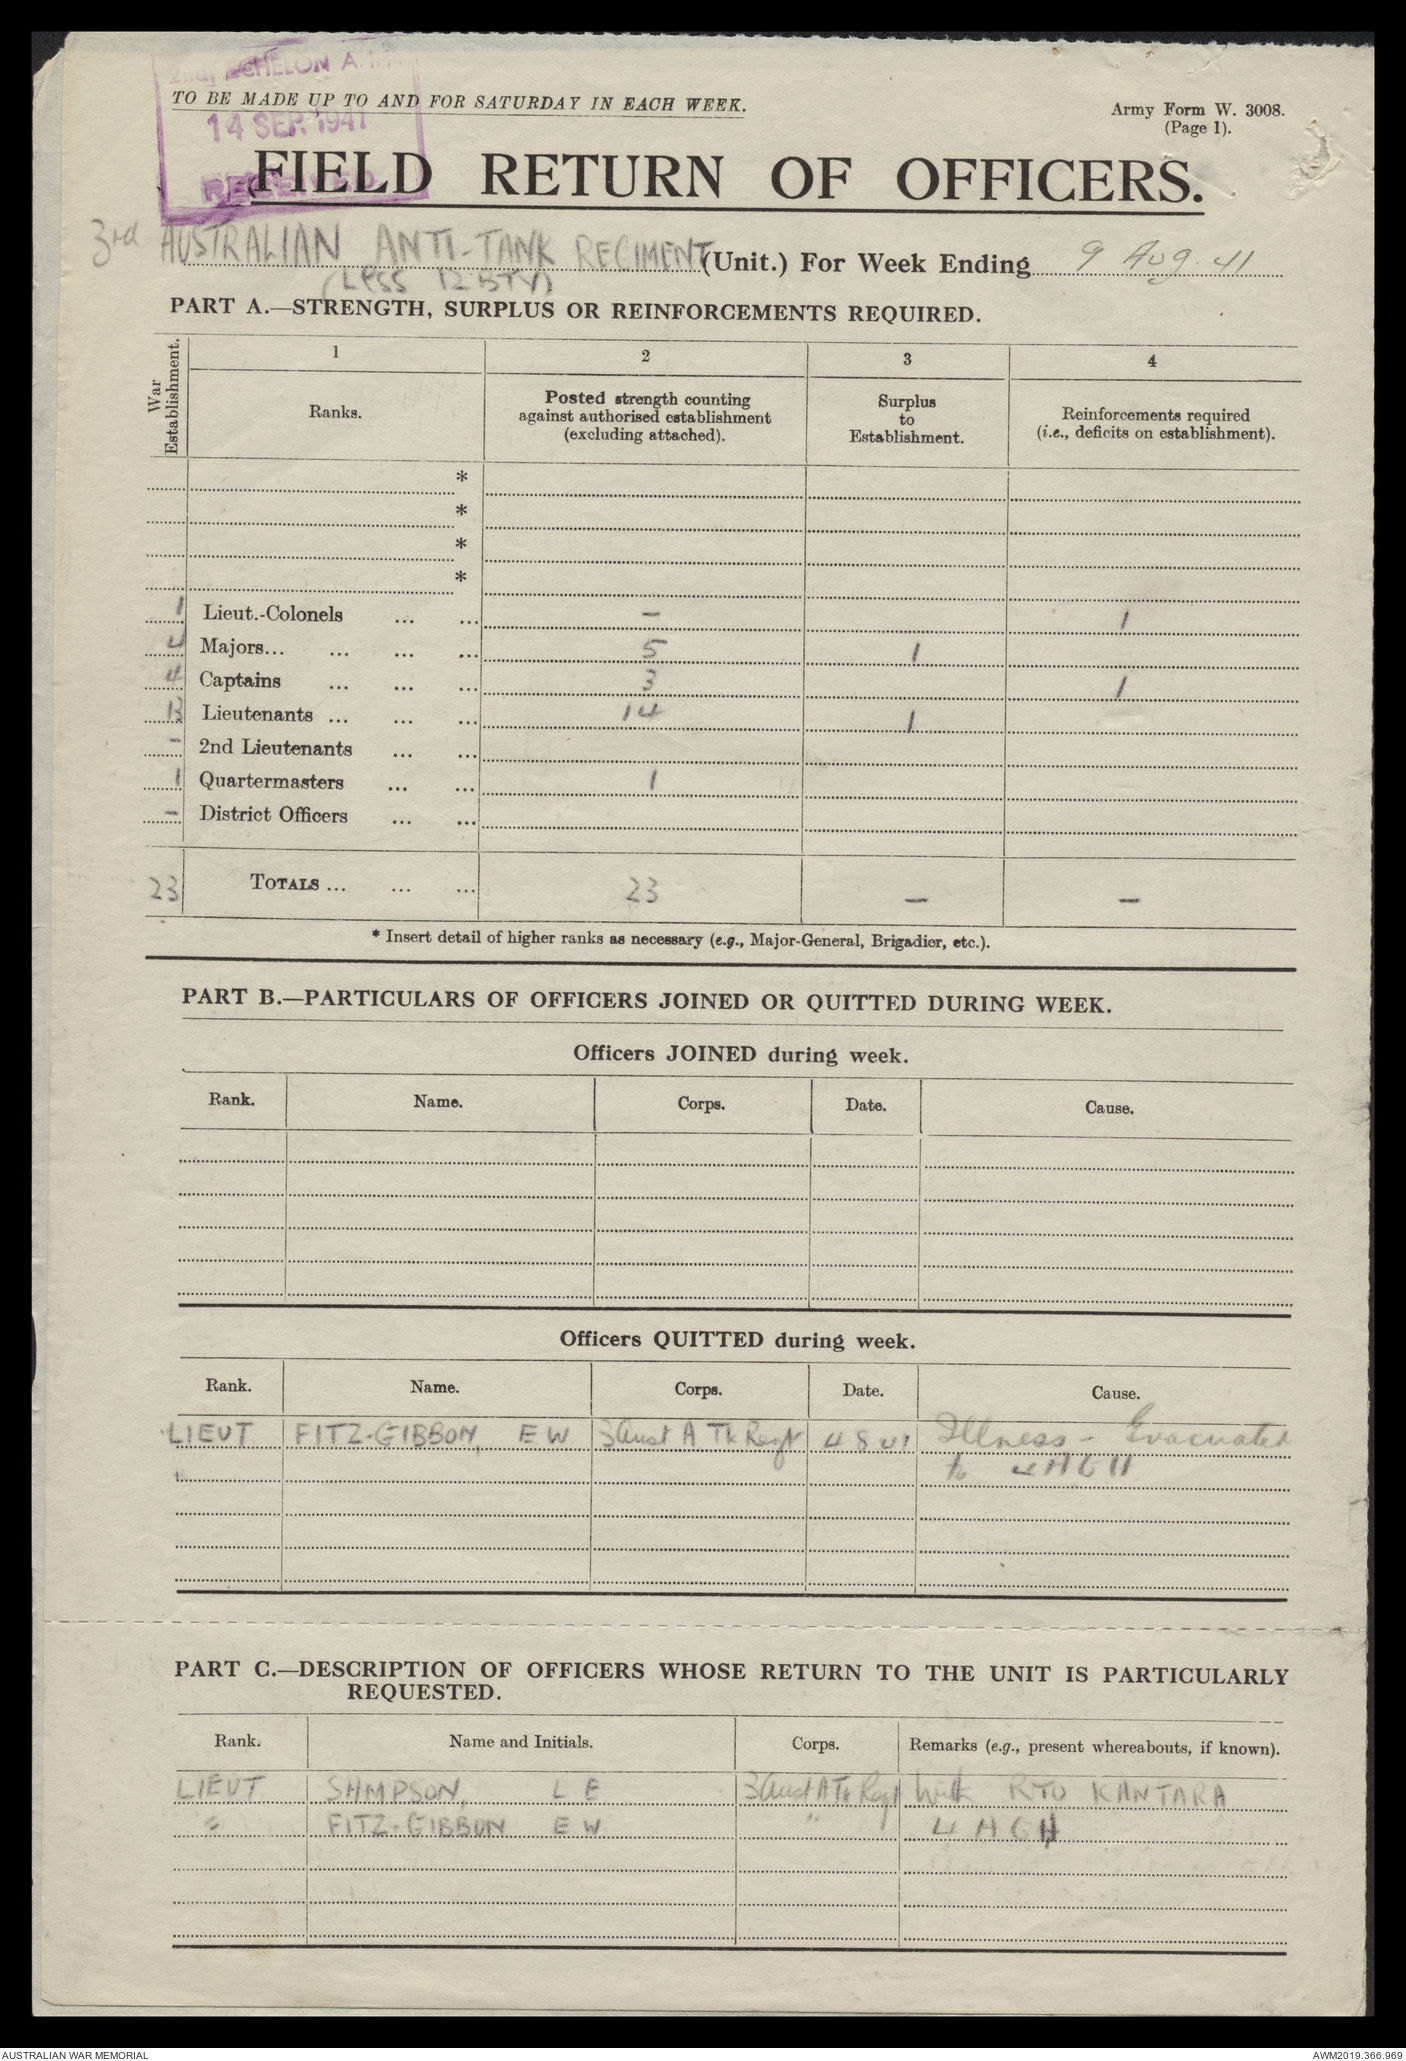 2nd ECHELON A.I.F.
TO BE MADE UP TO AND FOR SATURDAY IN EACH WEEK.
14 SEP. 1941
RECEIVED
Army Form W. 3008.
(Page 1).
FIELD RETURN OF OFFICERS.
3rd AUSTRALIAN ANTI-TANK REGIMENT (Unit.) For Week Ending 9 Aug. 41
(LESS 12 BTY)
PART A.—STRENGTH, SURPLUS OR REINFORCEMENTS REQUIRED.
War Establishment.
1 2 3 4
Ranks.
Posted strength counting
against authorised establishment
(excluding attached).
Surplus
to
Establishment.
Reinforcements required
(i.e., deficits on establishment).
*
*
*
*
1 Lieut.-Colonels ... ... – 1
4 Majors... ... ... ... 5 1
4 Captains ... ... ... 3 1
13 Lieutenants ... ... ... 14 1
– 2nd Lieutenants ... ...
1 Quartermasters ... ... 1
– District Officers ... ...
23 TOTALS ... ... ... 23 – –
* Insert detail of higher ranks as necessary (e.g., Major-General, Brigadier, etc.).
PART B.—PARTICULARS OF OFFICERS JOINED OR QUITTED DURING WEEK.
Officers JOINED during week.
Rank. Name. Corps. Date. Cause.
Officers QUITTED during week.
Rank. Name. Corps. Date. Cause.
LIEUT FITZ-GIBBON, E W 3 Aust A Tk Regt 4 8 41 Illness – Evacuated
to 4 AGH
PART C.—DESCRIPTION OF OFFICERS WHOSE RETURN TO THE UNIT IS PARTICULARLY
REQUESTED.
Rank. Name and Initials. Corps. Remarks (e.g., present whereabouts, if known).
LIEUT L E 3 Aust A Tk Regt With RTO KANTARA
" FITZ-GIBBON E W " 4 AGH
AUSTRALIAN WAR MEMORIAL
AWM2019.366.969